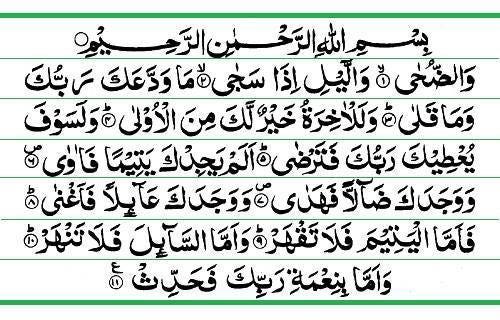 بِسْمِ اللهِ الرَّحْمٰنِ الرَّحِيْمِ○
وَالضُّحٰى۝۱ۙ وَالَّيْلِ اِذَا سَجٰى۝۲ۙ مَا وَدَّعَكَ رَبُّكَ
وَمَا قَلٰى۝۳ؕ وَلَلْاٰخِرَةُ خَيْرٌ لَّكَ مِنَ الْاُوْلٰى۝۴ؕ وَلَسَوْفَ
يُعْطِيْكَ رَبُّكَ فَتَرْضٰى۝۵ؕ اَلَمْ يَجِدْكَ يَتِيْمًا فَاٰوٰى۝۶ص
وَوَجَدَكَ ضَآلًّا فَهَدٰى۝۷ص وَوَجَدَكَ عَآىِٕلًا فَاَغْنٰى۝۸ؕ
فَاَمَّا الْيَتِيْمَ فَلَا تَقْهَرْ۝۹ؕ وَاَمَّا السَّآىِٕلَ فَلَا تَنْهَرْ۝۱۰ؕ
وَاَمَّا بِنِعْمَةِ رَبِّكَ فَحَدِّثْ۝۱۱ع